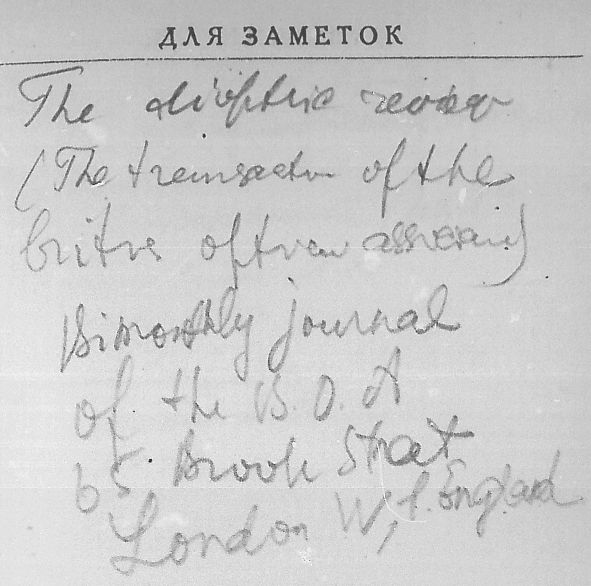 ДЛЯ ЗАМЕТОК
The dioptric review
(The transactn of the
british optical
Bimonthly journal
of the B. O. A
65. Brook Street
London W, 1. England